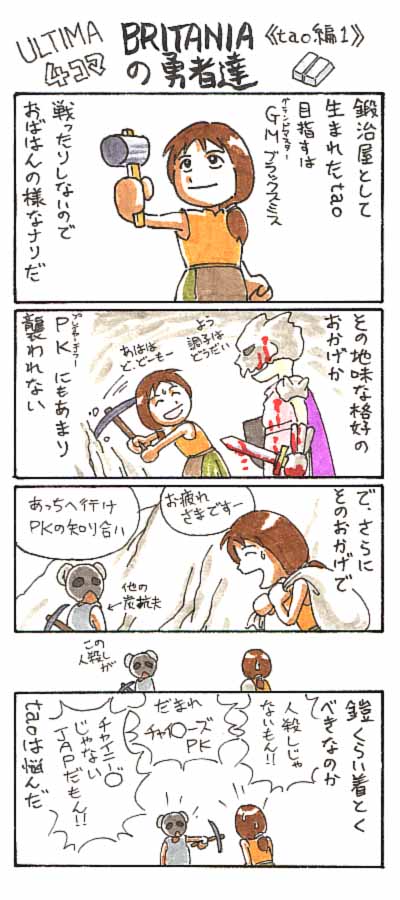 ULTIMA
4コマ
BRITANIA
の勇者達
《tao編1》
鍛冶屋として
生まれたtao
目指すは
GMブラックスミス
グランドマスター
戦ったりしないので
おばはんの様なナリだ
その地味な格好の
おかげか
よう
調子は
どうだい
あはは
ど、どもー
PKにもあまり
プレイヤーキラー
襲われない
で、さらに
そのおかげで
お疲れ
さまですー
あっちへ行け
PKの知り合い
他の
炭抗夫
この
人殺しが
鎧くらい着とく
べきなのか
人殺しじゃ
ないもん!!
だまれ
チャイ〇ーズ
PK
チャイニー〇
じゃない
JAPだもん!!
taoは悩んだ